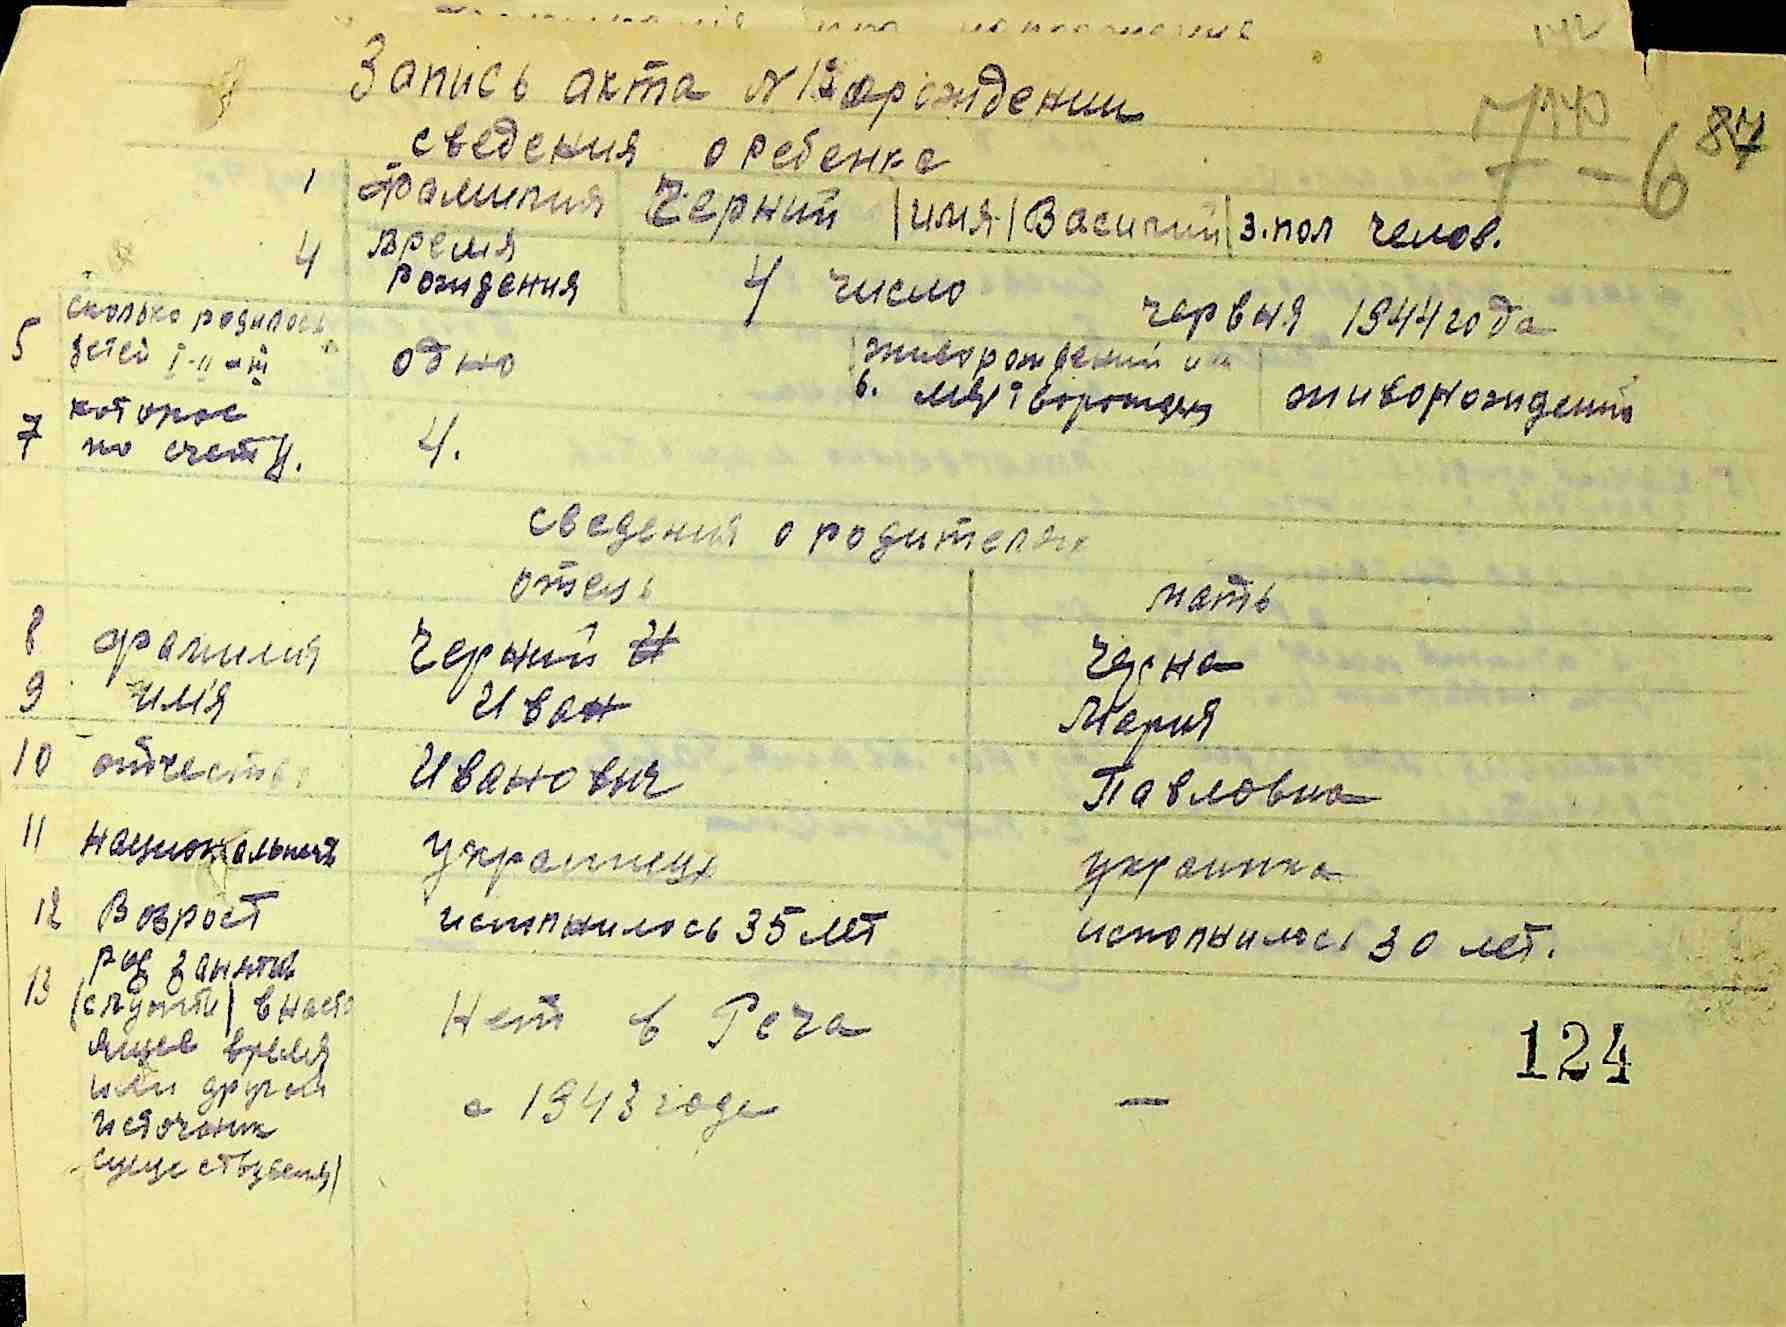 Запись акта N о рождении
87
сведения о ребенке
7 - 6
1 фамилия Черний |имя| Василий | 3. пол челов.
4 время рождения 4 число червня 1944 года
5 сколько родилось детей I-II-III одно
6. живорожденый или мертворожден живорожденый
7 которое по счету. 4.
сведения о родителях
отець мать
8 фамилия Черний Черна
9 имя Иван Мария
10 отчество Иванович Павловна
11 националность украинец украинка
12 Возрост исполнилось 35 лет исполнилось 30 лет.
13 род занятий (служити) в насто Нет в
ящее время 124
или другой с 1943 года —
источник
существования)